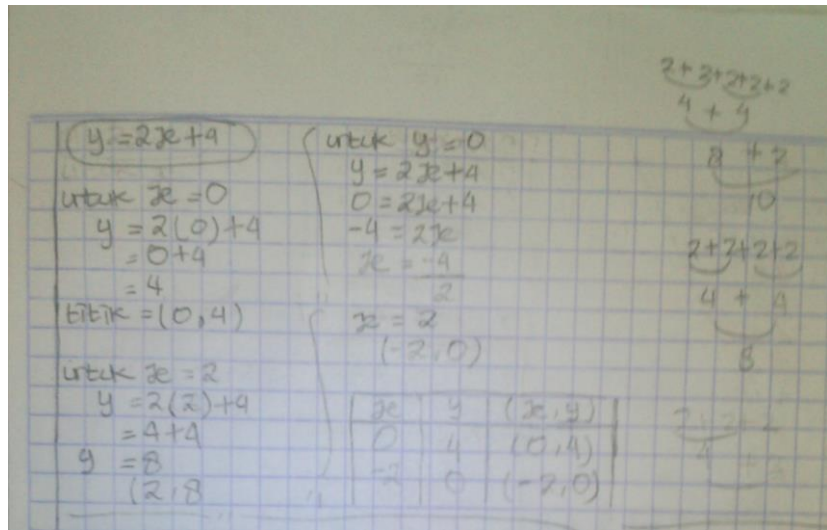 y = 2x + 4
untuk x = 0
y = 2(0) + 4
= 0 + 4
= 4
titik = (0, 4)
untuk x = 2
y = 2(2) + 4
= 4 + 4
y = 8
(2, 8
untuk y = 0
y = 2x + 4
0 = 2x + 4
-4 = 2x
x = -4
2
x = 2
(-2, 0)
x y (x, y)
0 4 (0, 4)
-2 0 (-2, 0)
2 + 2 + 2 + 2 + 2
4 + 4
8 + 2
10
2 + 2 + 2 + 2
4 + 4
8
2 + 2 + 2
4 + 2